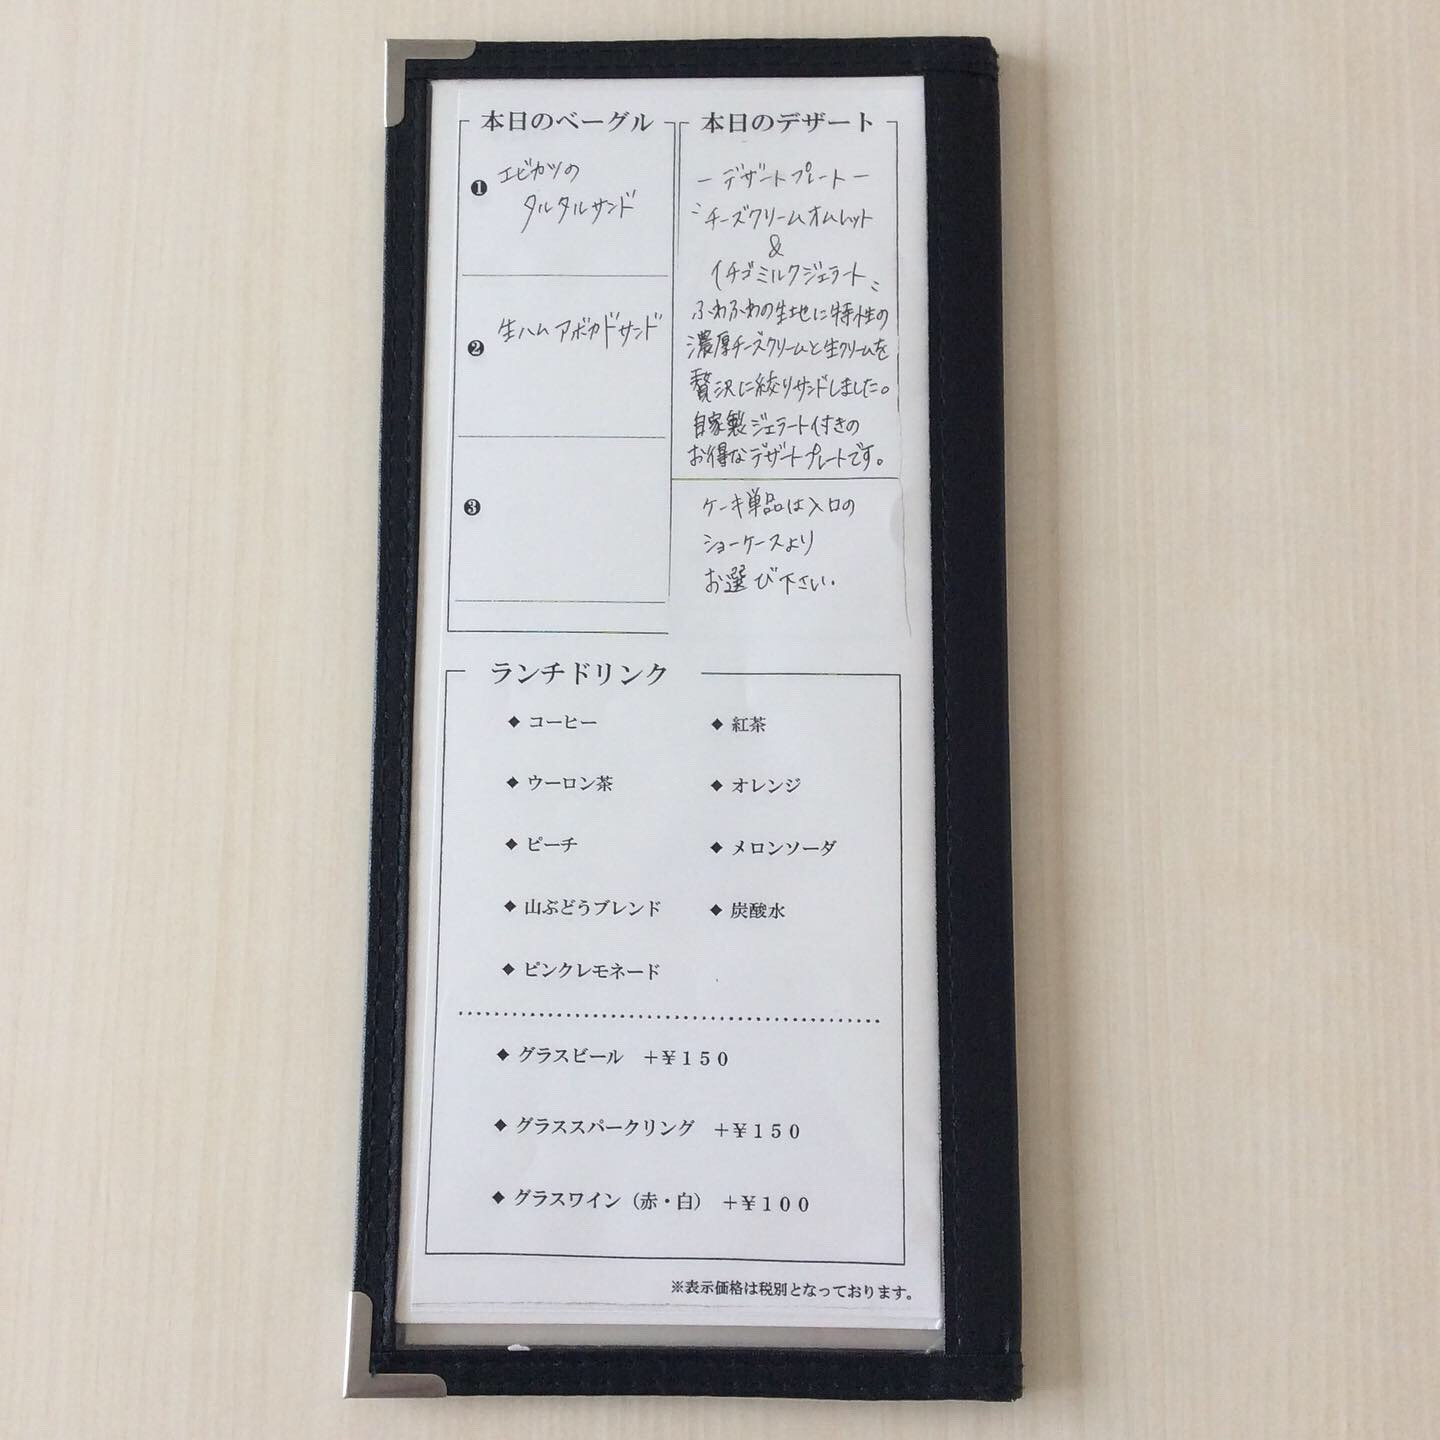 本日のベーグル
❶ エビカツの
タルタルサンド
❷ 生ハムアボカドサンド
❸
本日のデザート
ーデザートプレートー
チーズクリームオムレット
&
イチゴミルクジェラート
ふわふわの生地に特性の
濃厚チーズクリームと生クリームを
贅沢に絞りサンドしました。
自家製ジェラート付きの
お得なデザートプレートです。
ケーキ単品は入口の
ショーケースより
お選び下さい.
ランチドリンク
◆ コーヒー ◆ 紅茶
◆ ウーロン茶 ◆ オレンジ
◆ ピーチ ◆ メロンソーダ
◆ 山ぶどうブレンド ◆ 炭酸水
◆ ピンクレモネード
◆ グラスビール +¥150
◆ グラススパークリング +¥150
◆ グラスワイン（赤・白） +¥100
※表示価格は税別となっております。